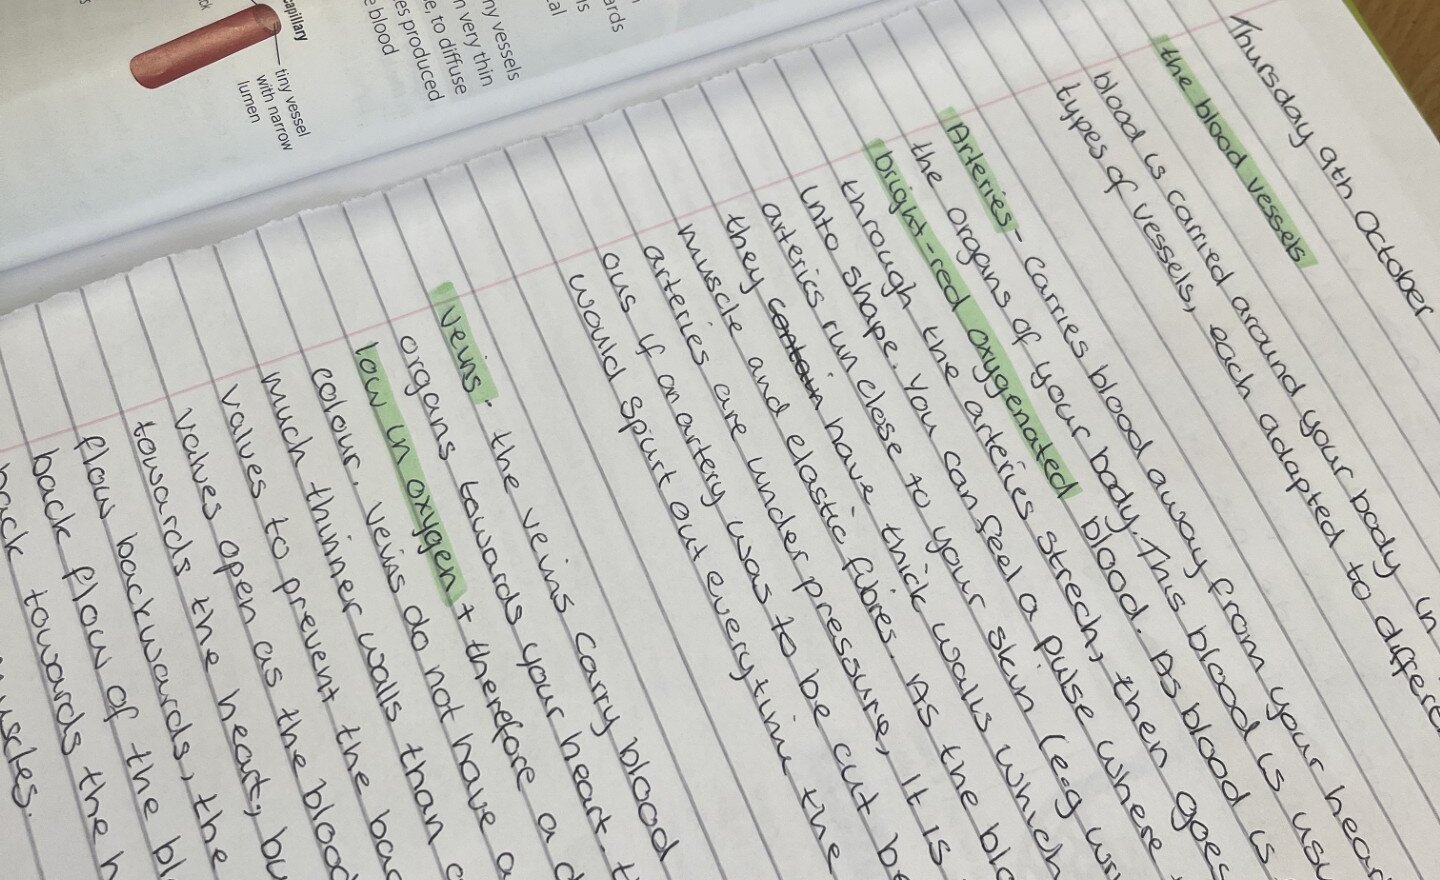 capillary
tiny vessel
with narrow
lumen
ny vessels
n very thin
e, to diffuse
es produced
e blood
ards
is
al
Thursday 9th October
the blood vessels
blood is carried around your body in
types of vessels, each adapted to differe
Arteries - carries blood away from your hear
the organs of your body. This blood is usu
bright-red oxygenated blood. As blood is
through the arteries strech, then goes
into shape. You can feel a pulse where
arteries run close to your skin (eg wri
they contain have thick walls which
muscle and elastic fibres. As the blo
arteries are under pressure, It is
ous if an artery was to be cut be
would spurt out everytime the
Veins. the veins carry blood
organs towards your heart. t
low in oxygen + therefore a d
colour. Veins do not have a
much thinner walls than a
valves to prevent the bac
valves open as the blood
towards the heart, bu
flow backwards, the
back flow of the bl
back towards the h
muscles.